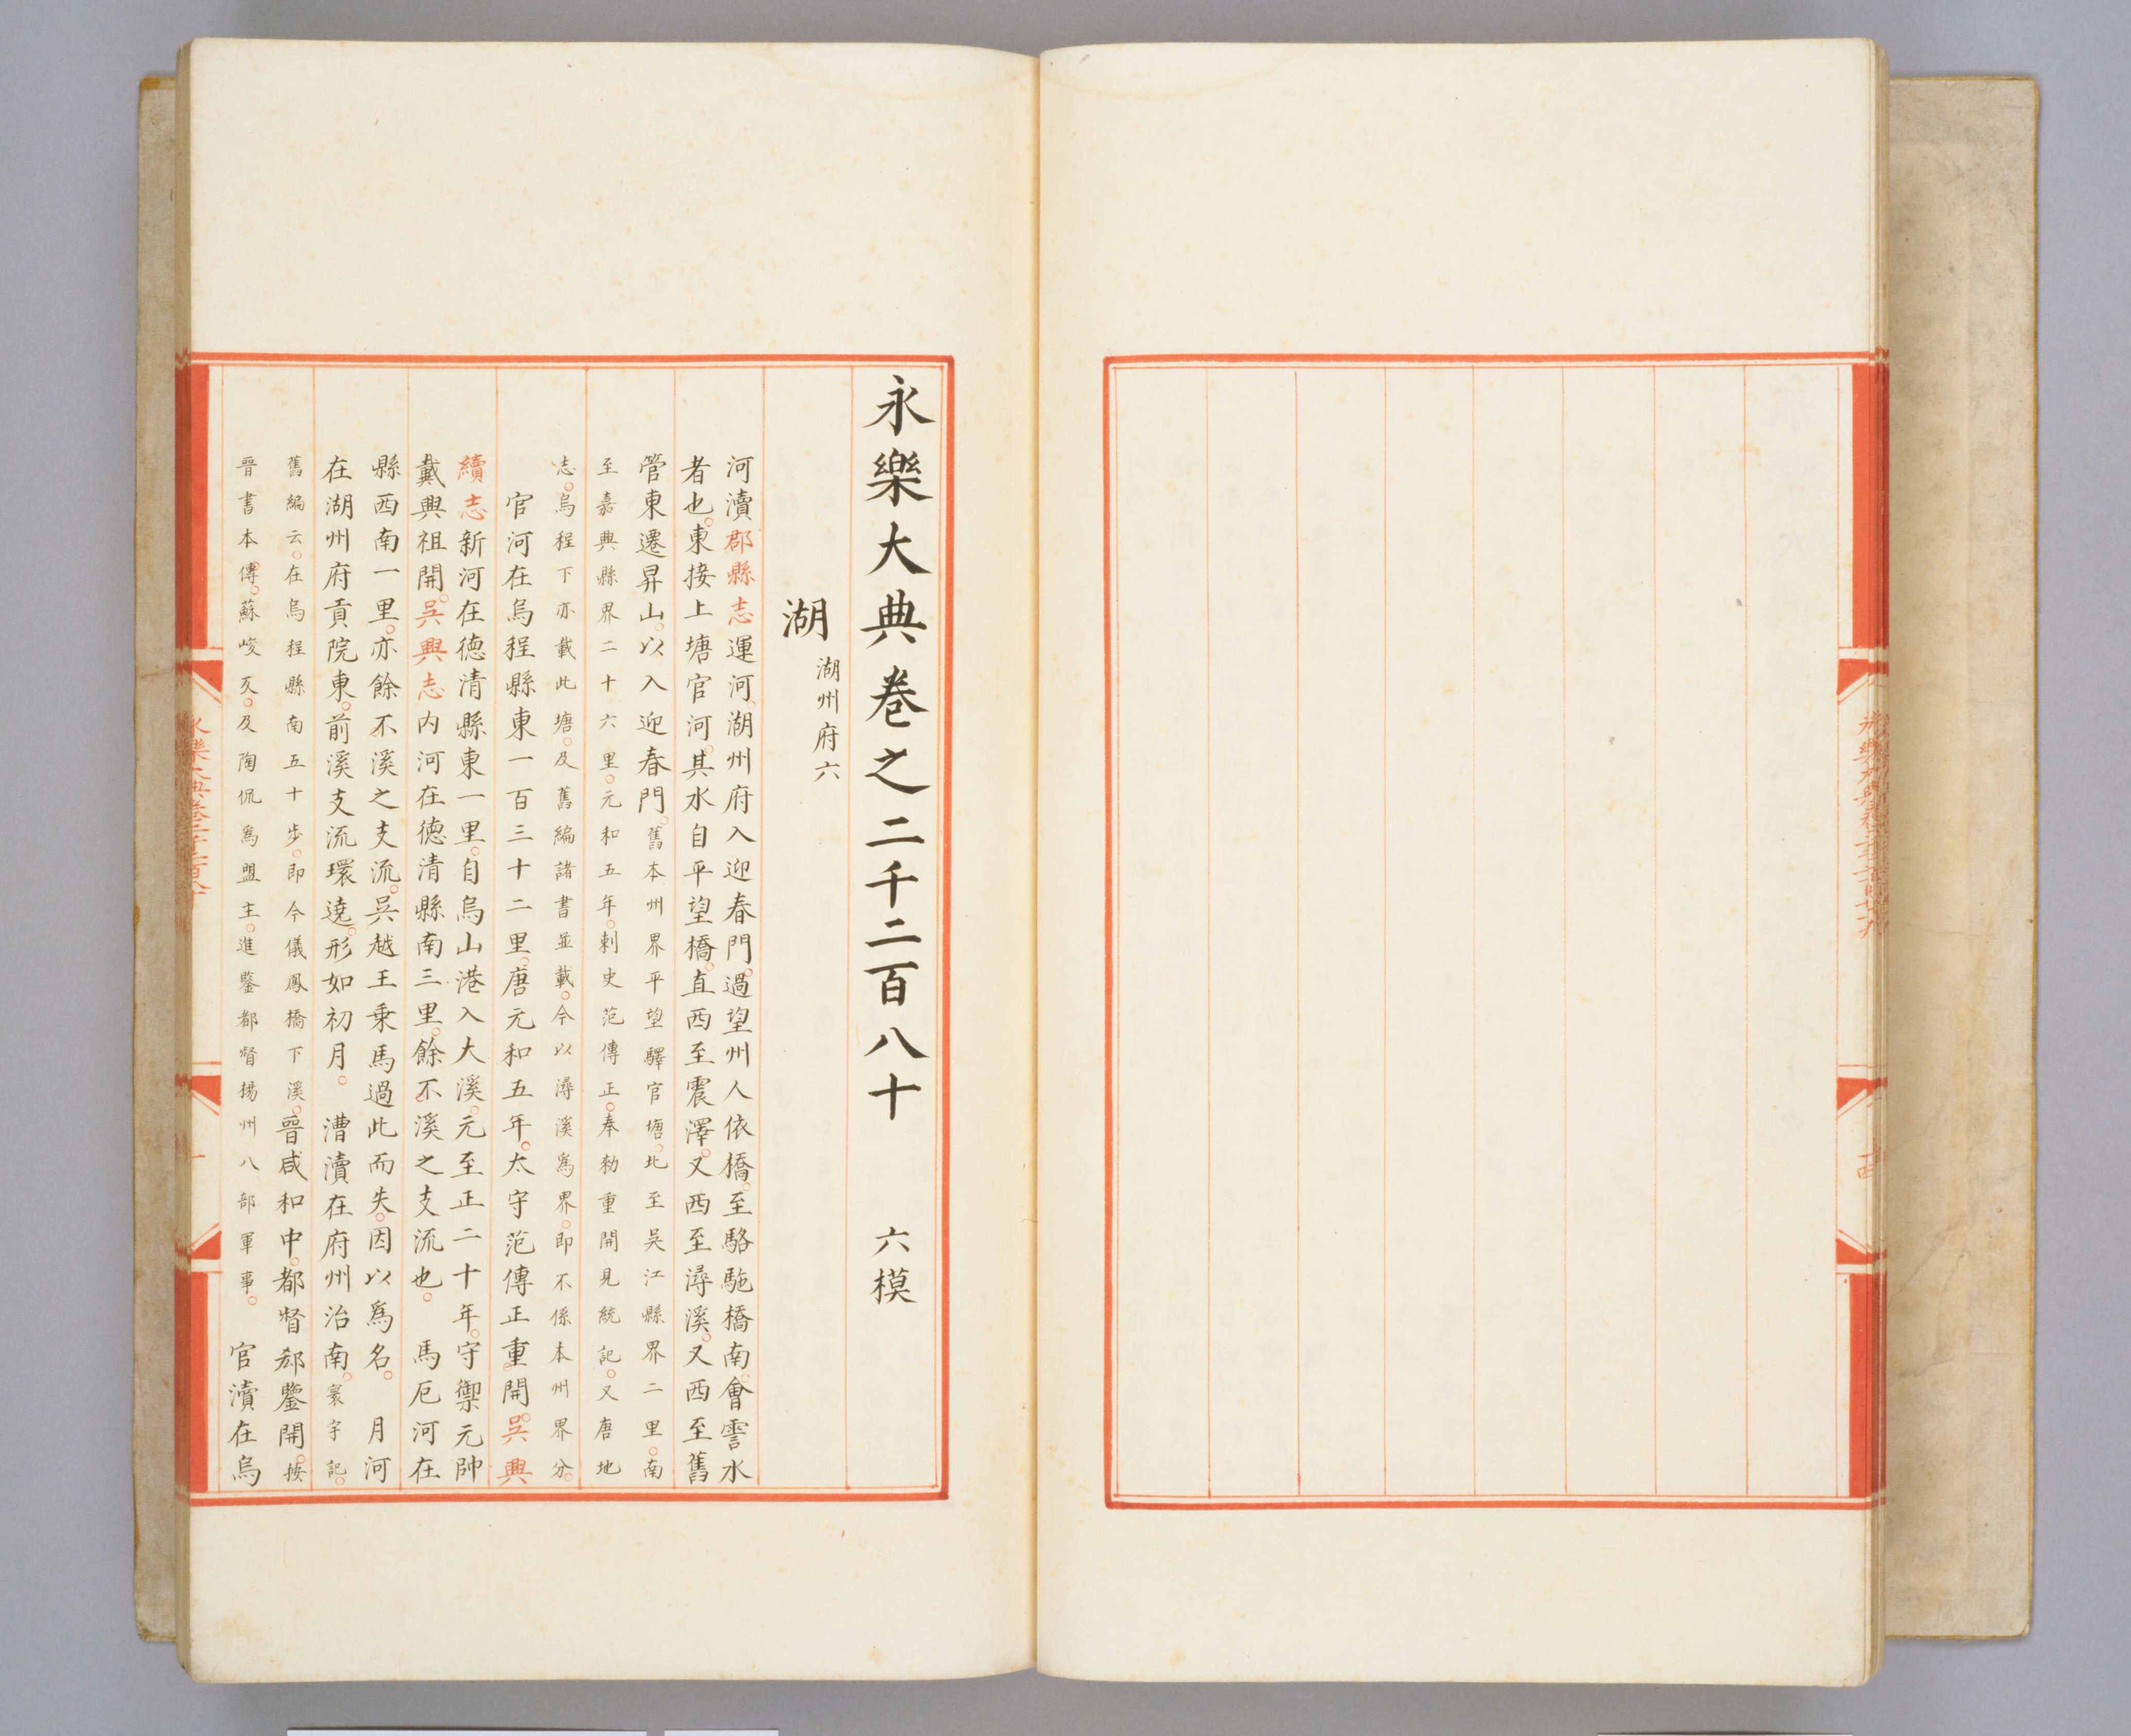 永樂大典卷之二千二百八十　六模
湖 湖州府六
河瀆郡縣志運河湖州府入迎春門。過望州人依橋。至駱駞橋南。會霅水
者也。東接上塘官河。其水自平望橋。直西至震澤。又西至潯溪。又西至舊
管東遷昇山。以入迎春門。舊本州界平望驛官塘。北至吳江縣界二里。南
至嘉興縣界二十六里。元和五年。刺史范傳正。奉勑重開見統記。又唐地
志。烏程下亦載此塘。及舊編諸書並載。今以潯溪爲界。即不係本州界分。
官河在烏程縣東一百三十二里。唐元和五年。太守范傳正重開。吳興
續志新河在德清縣東一里。自烏山港入大溪。元至正二十年。守禦元帥
戴興祖開。吳興志内河在德清縣南三里。餘不溪之支流也。　馬厄河在
縣西南一里。亦餘不溪之支流。吳越王乗馬過此而失。因以爲名。　月河
在湖州府貢院東。前溪支流環遶。形如初月。　漕瀆在府州治南。寰宇記。
舊編云。在烏程縣南五十步。即今儀鳳橋下溪。晉咸和中。都督郄鑒開。按
晉書本傳。蘇峻反。及陶侃爲盟主。進鑒都督揚州八部軍事。　官瀆在烏